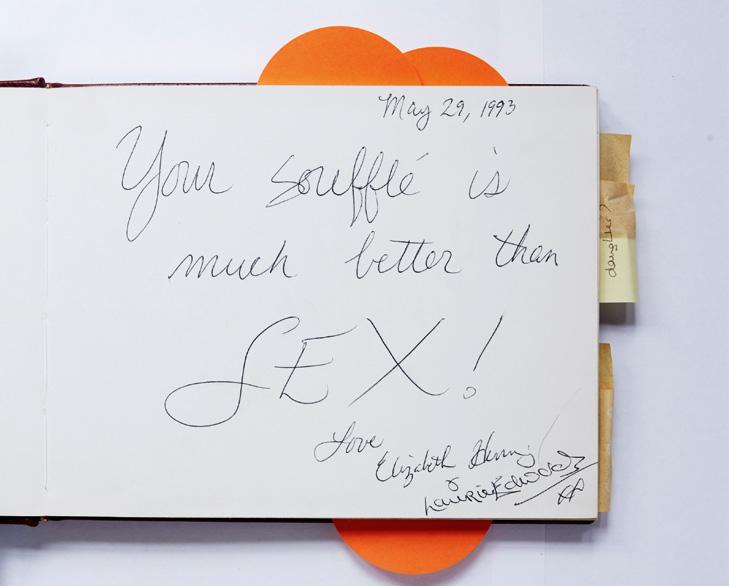 May 29, 1993
Your soufflé is
much better than
SEX!
Love
Elizabeth
& Laurie Edwards